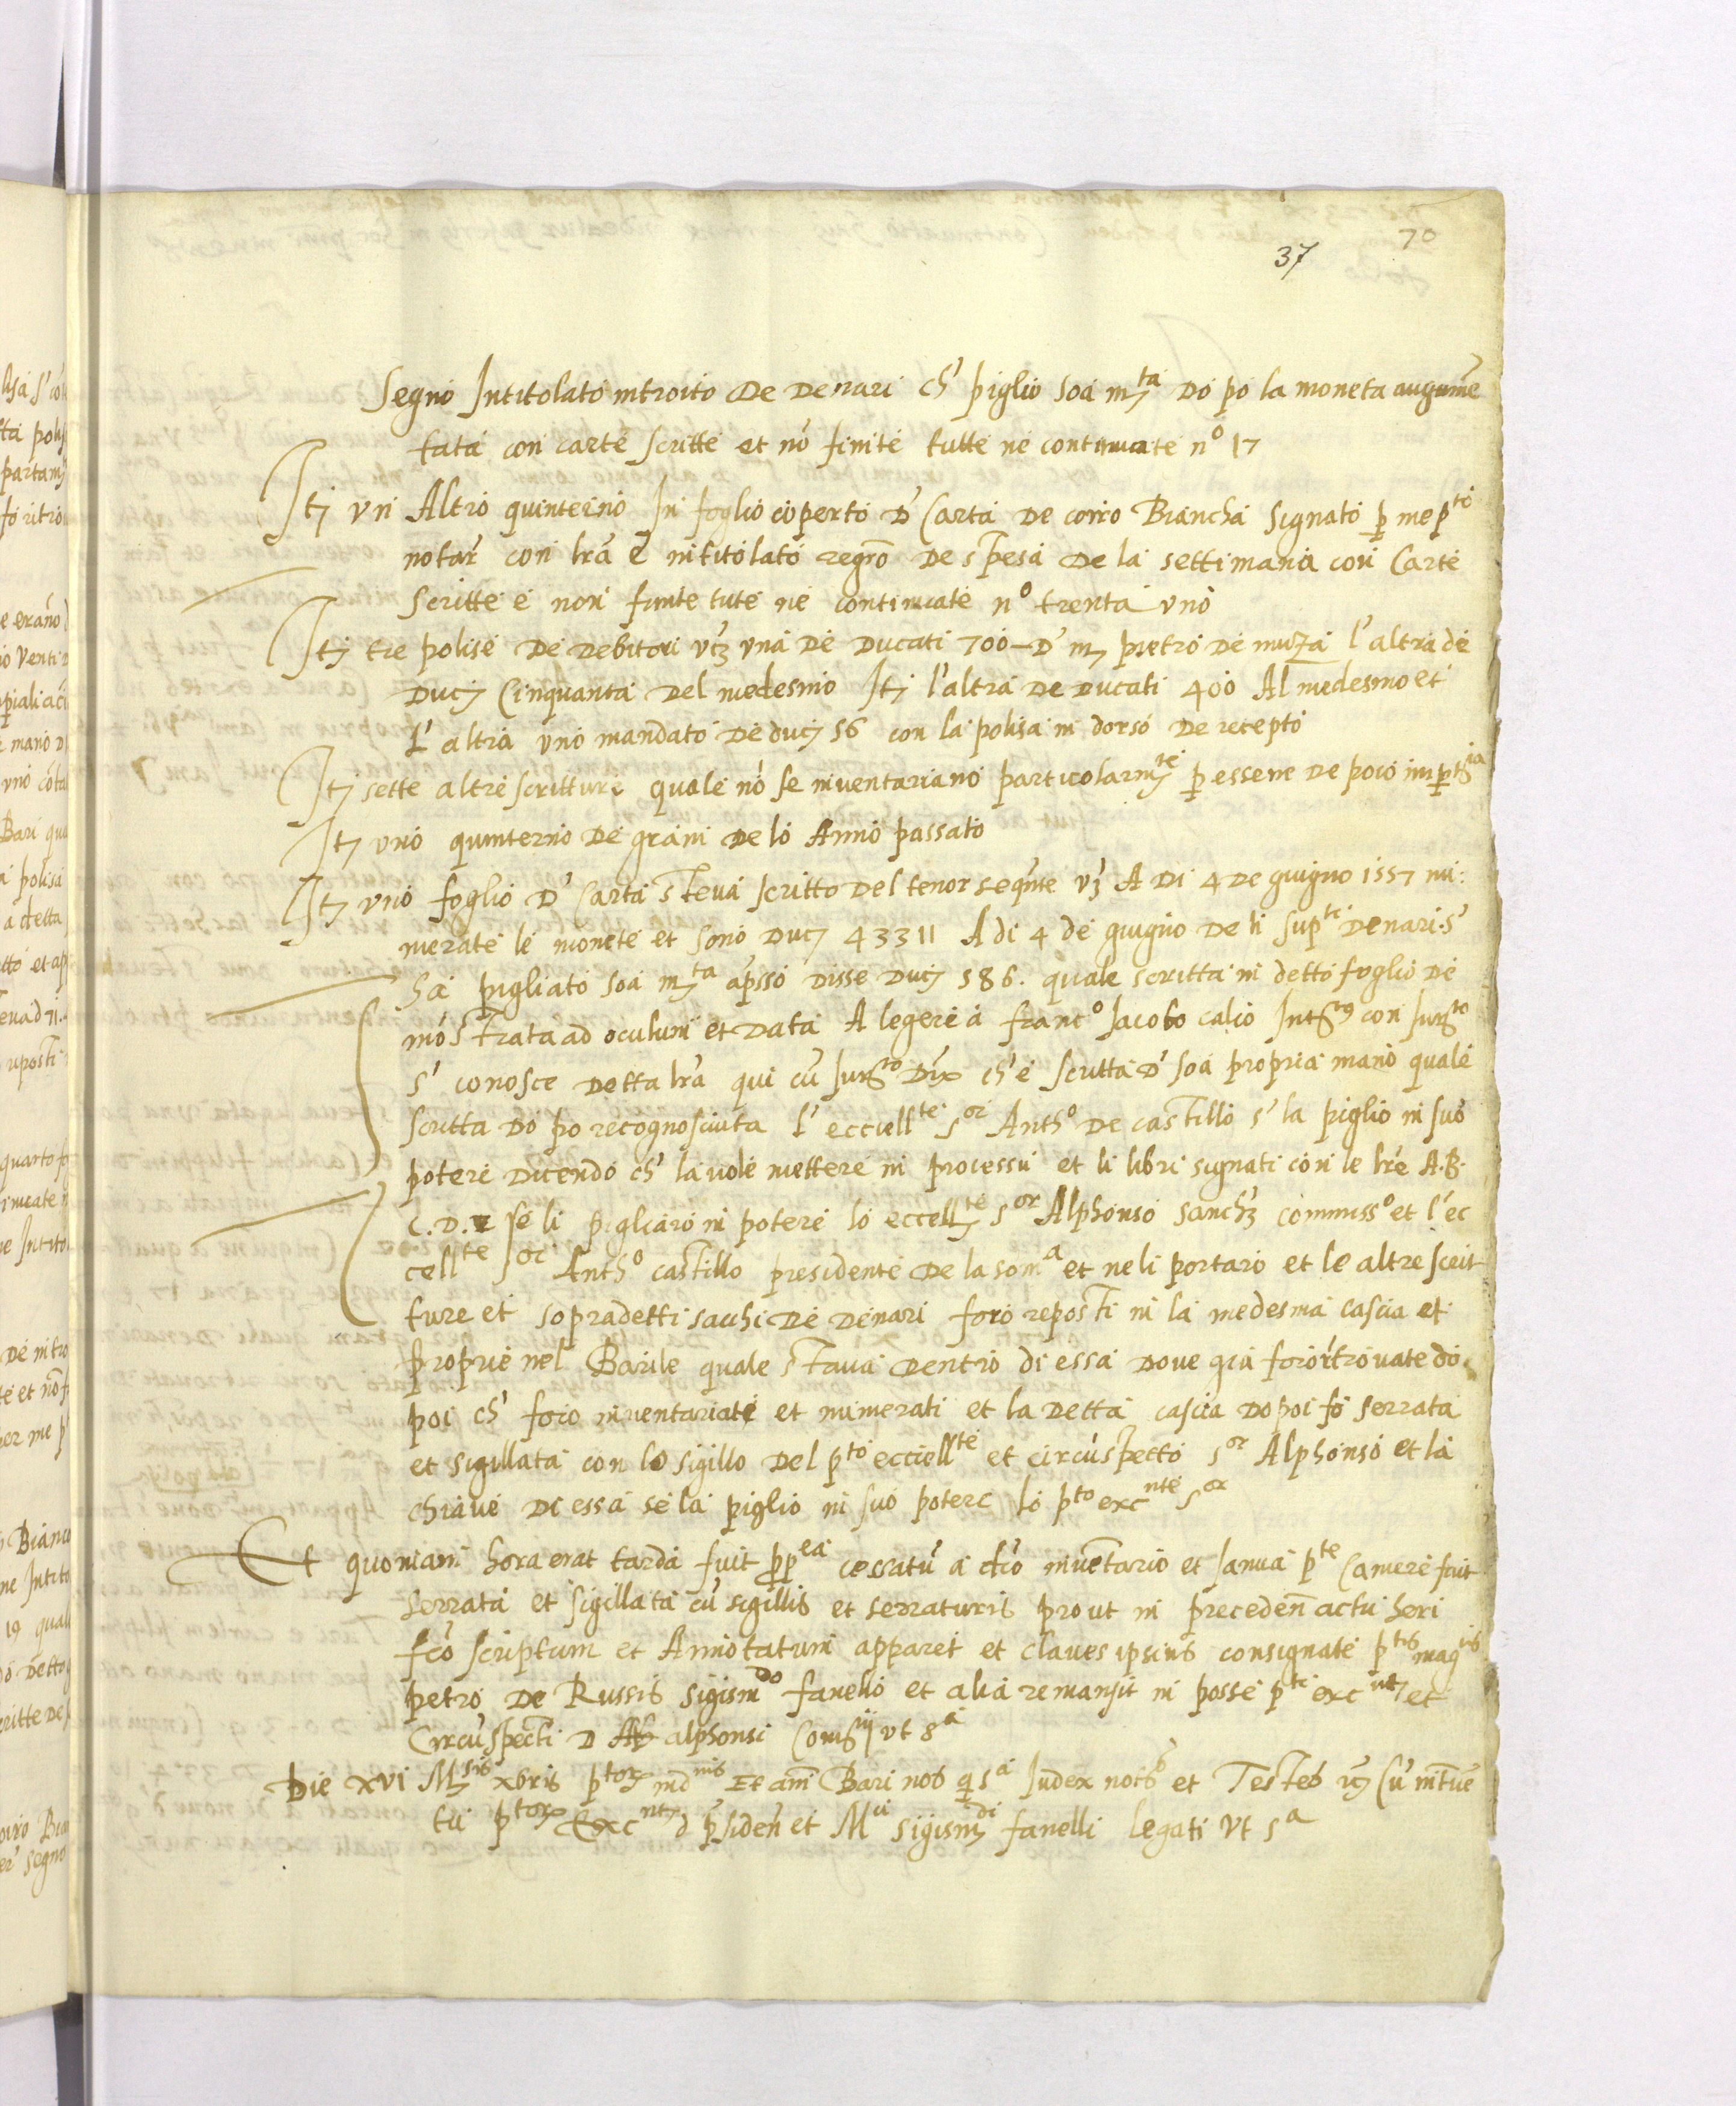 70
37
Segno Intitolato introito De Denari ch' piglio soa m.ta Do po la moneta augume
tata con carte scritte et nō finite tutte ne continuate n.o 17
Itȝ un Altro quinterno In foglio coperto D' Carta De corio Biancha signato p me p.to
notar con lr̄a E intitolato regr̄o De spesa De la settimana con Carte
scritte e non finite tute ne continuate n.o trenta uno
Itȝ tre polise De Debitori vȝ una De Ducati 700 – D' m. pietro De muza l'altra de
Ducȝ Cinquanta Del medesmo Itȝ l'altra De Ducati 400 Al medesmo et
L'altra uno mandato De ducȝ 56 con la polisa in dorso De recepto
Itȝ sette altre scritture quale nō se inventariano particolarm.te p essere De poco
Itȝ uno quinterno De grani De lo Anno passato
Itȝ uno foglio D' Carta steva scritto Del tenor seqn̄te vȝ A Di 4 De giugno 1557 nu:
merate le monete et sono Ducȝ 43311 A di 4 de giugno De li sup.ti Denari s'
ha pigliato soa m.ta ap̄sso Disse Ducȝ 586. quale scritta in detto foglio De
mostrata ad oculum et Data A legere a franc.o Jacobo calio con Jur.to
s' conosce Detta lr̄a qui cū Jur.to Dix ch' e scritta D' soa propria mano quale
scritta Do po recognosciuta L' eccell.te s.or Anth.o De castillo s' la piglio in suo
potere Dicendo ch' la vole mettere in processu et li libri signati con le lr̄e A.B.
C.D.E se li pigliaro in potere lo eccell.te s.or Alphonso sanchȝ commiss.o et l'ec
cell.te s.or Anth.o castillo presidente De la som.a et ne li portaro et le altre scrit
ture et sopradetti sacchi De Denari foro reposti in la medesma cascia et
proprie nel Barile quale stava Dentro di essa Dove gia foro ritrovate do
poi ch' foro inventariate et numerati et la Detta cascia Dopoi fo serrata
et sigillata con lo sigillo Del p.to eccell.te et circūspetto s.or Alphonso et la
chiave Di essa se la piglio in suo potere lo p.to exc.nte s.or
Et quoniam hora erat tarda fuit pp.ea cessatū a dc̄o inventario et Janua p.te Camere fuit
serrata et sigillata cū sigillis et serraturis prout in preceden̄ actu heri
fc̄o scriptum et Annotatum apparet et claves ipsius consignate p.tis mag.cis
petro De Russis sigism.do fanello et alia remansit in posse p.ti exc.ntis et
Circūspecti D alphonsi Comss.ij vt s.a
Die xvi Mȝsis xbris p.te ind.nis Et in Bari nos q s.a Judex not.s et Testes cū intūe
tu p.torȝ Exc.ntis d p̄siden̄ et M.ci sigism.di fanelli legati vt s.a